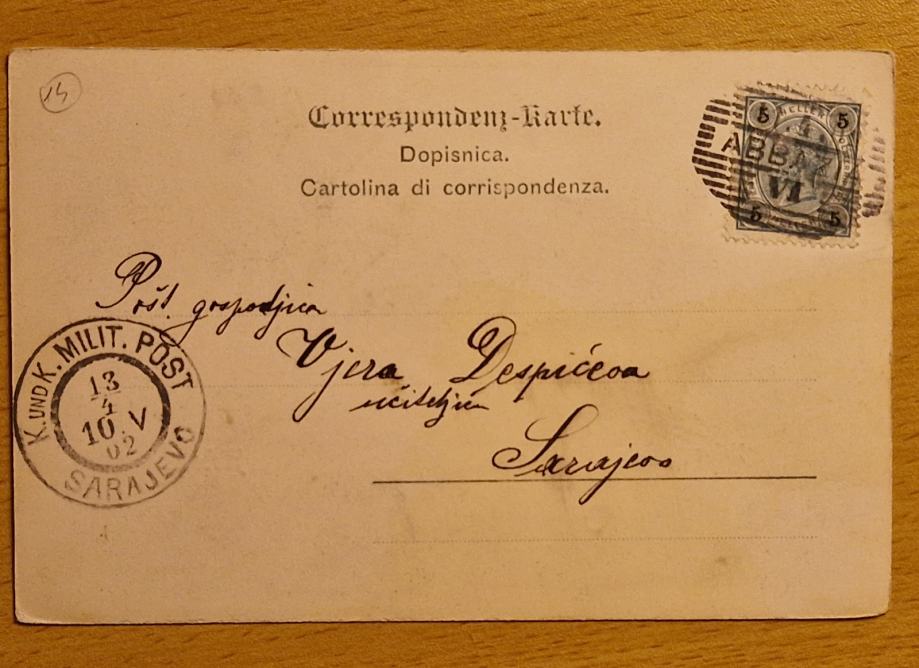 14
Correspondenz-Karte.
Dopisnica.
Cartolina di corrispondenza.
5 HELLER 5
ABBAZ
VI
5 5
Pošt. gospodjica
Vjera Despićeva
učiteljica
Sarajevo
K. UND K. MILIT. POST
13
4
10 V
02
SARAJEVO